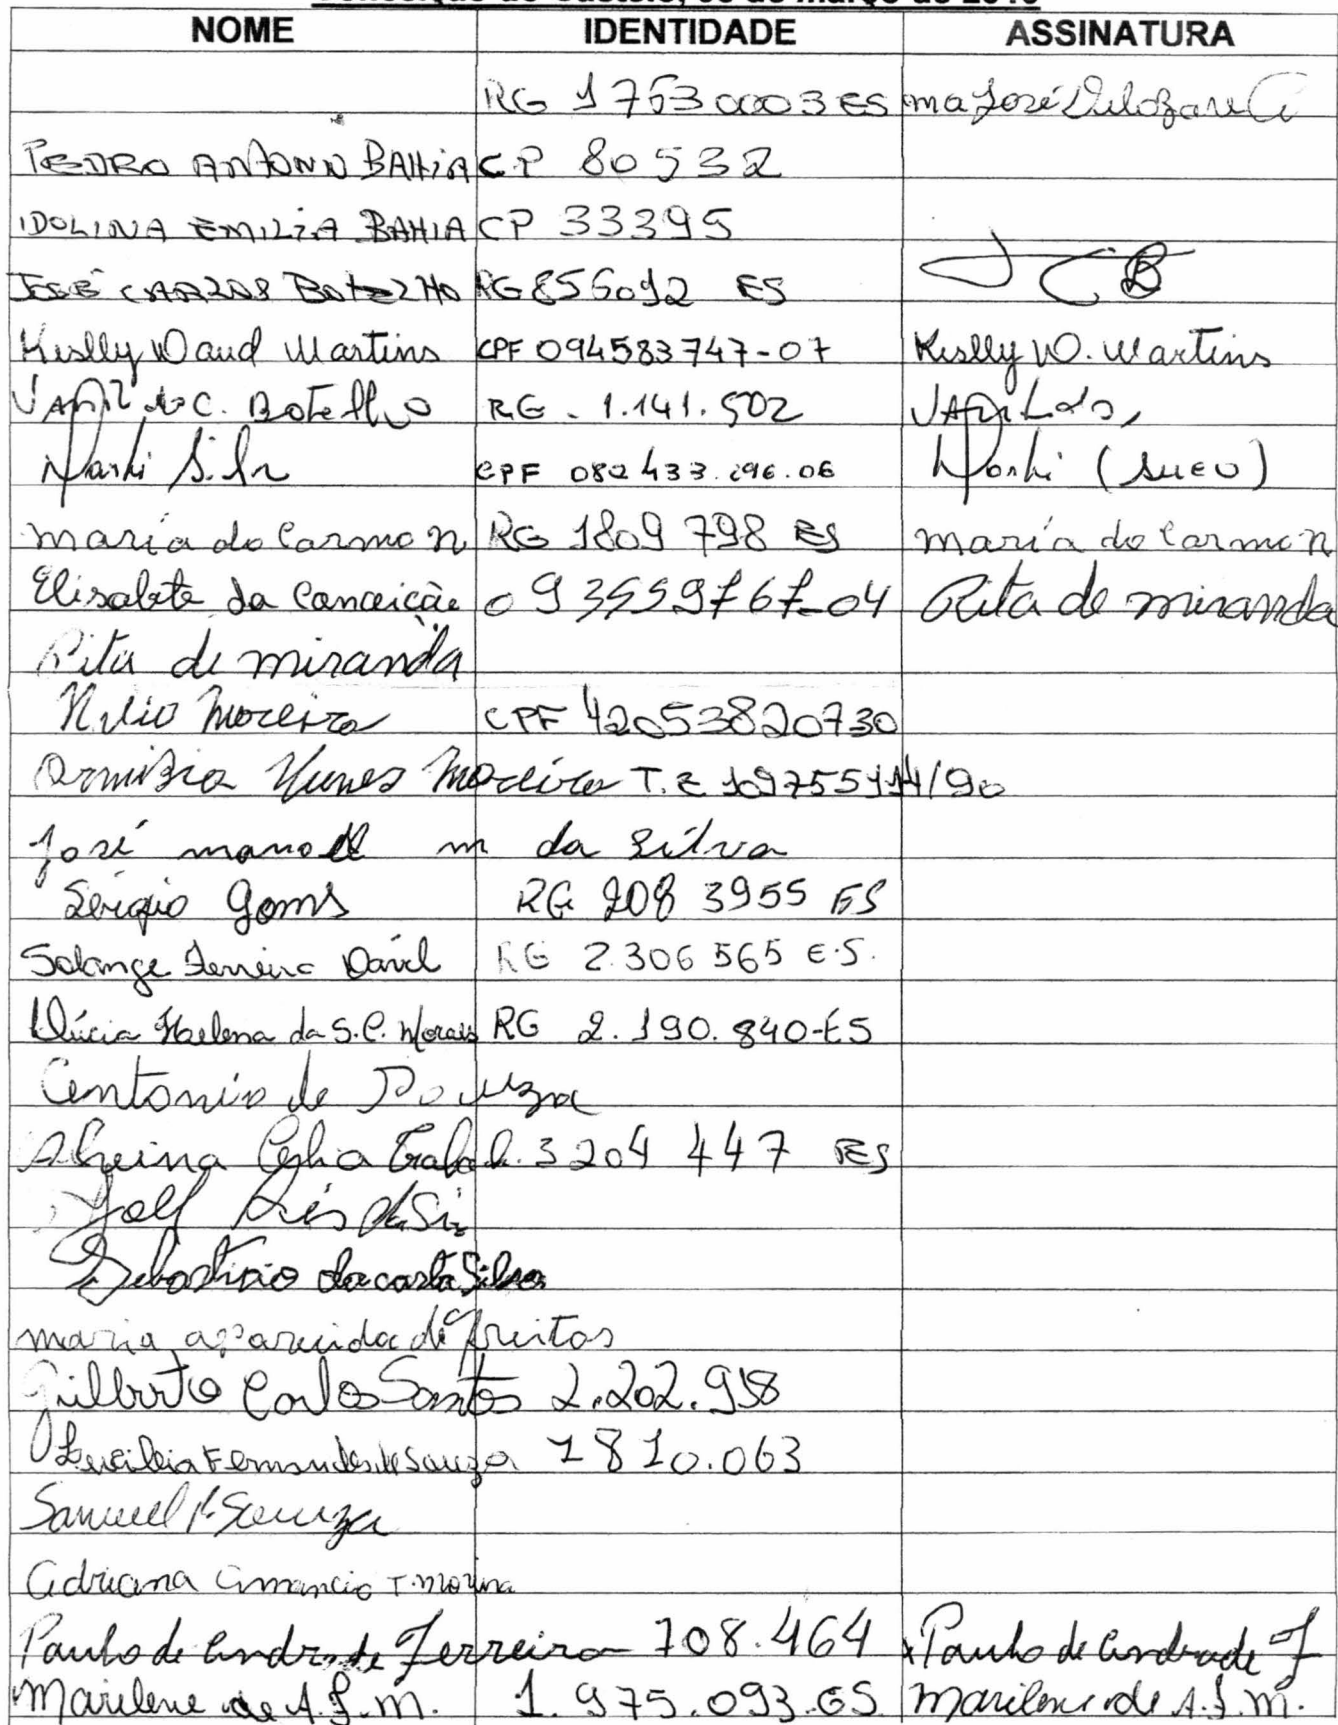 Conceição do Castelo, 08 de março de 2010
NOME IDENTIDADE ASSINATURA
RG 1763 0003 ES ma José
PEDRO ANTONIO BAHIA CP 80532
IDOLINA EMILIA BAHIA CP 33395
JOSÉ CARLOS BOTELHO RG 856092 ES JCB
Keslly Daud Martins CPF 094583747-07 Keslly D. Martins
C. Botelho RG - 1.141.502
CPF 082 433.296.06
maria do Carmo n RG 1809 798 ES maria do Carmo n
Elisabete da Conceição 093559767-04 Rita de miranda
Rita de miranda
Nilio Moreira CPF 42053820730
Ormizia Nunes Moreira T.E 109755114/90
José manoel m da Silva
Sérgio Goms RG 208 3955 ES
Solange Ferreira Davel RG 2.306 565 E.S.
Lúcia Helena da S.C. Morais RG 2.190.840-ES
Antonio de Souza
3204 447 ES
Sebastião da costa Silva
maria aparecida de freitas
Gilberto Carlos Santos 2.202.958
Lucileia Fernandes de Souza 1810.063
Samuel P. Souza
Adriana Amancio T. Morina
Paulo de Andrade Ferreira 708.464 x Paulo de Andrade F
Marilene de A.F.M. 1.975.093.ES Marilene de A.F.M.